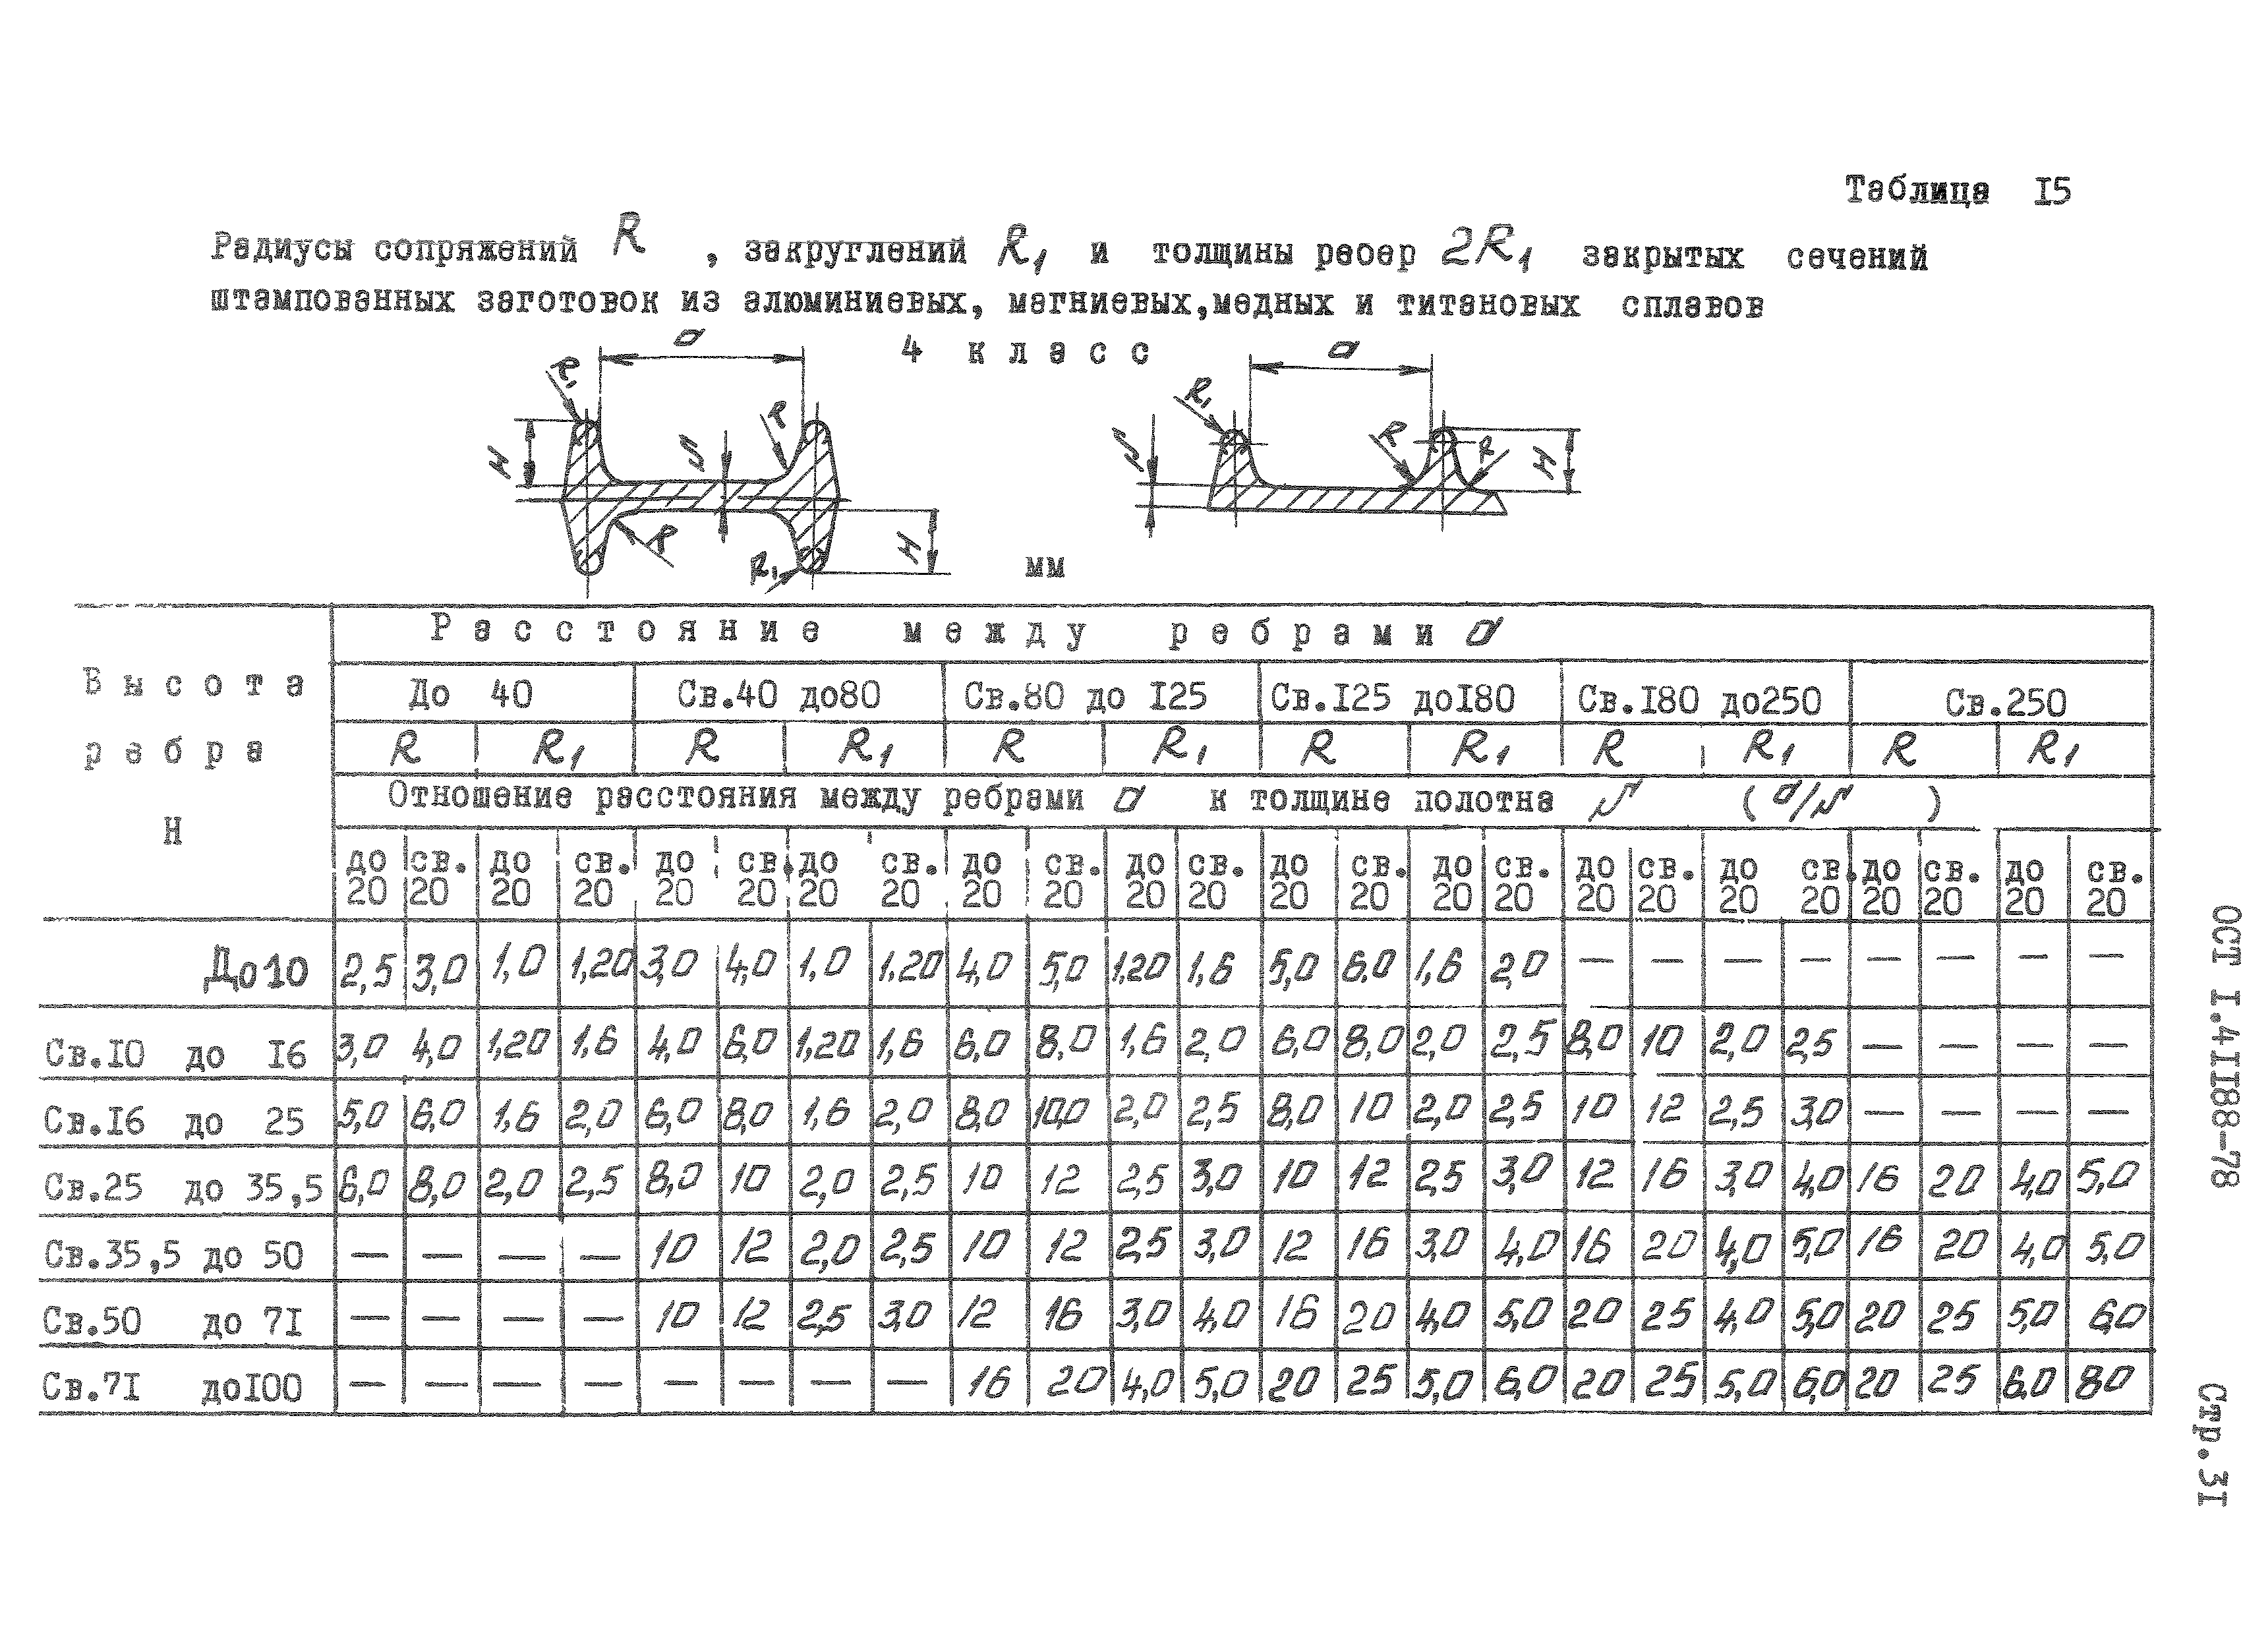 Таблица I5
Радиусы сопряжений R , закруглений R1 и толщины ребер 2R1 закрытых сечений
штампованных заготовок из алюминиевых, магниевых,медных и титановых сплавов
4 класс
a
a
R1
R
H
S
R
H
R1
R1
S
R
R
H
мм
Высота ребра H
Расстояние между ребрами a
До 40 Св.40 до80 Св.80 до I25 Св.I25 доI80 Св.I80 до250 Св.250
R R1 R R1 R R1 R R1 R R1 R R1
Отношение расстояния между ребрами a к толщине полотна S (a/S)
до 20 св. 20 до 20 св. 20 до 20 св. 20 до 20 св. 20 до 20 св. 20 до 20 св. 20 до 20 св. 20 до 20 св. 20 до 20 св. 20 до 20 св. 20 до 20 св. 20 до 20 св. 20
До 10 2,5 3,0 1,0 1,20 3,0 4,0 1,0 1,20 4,0 5,0 1,20 1,6 5,0 6,0 1,6 2,0 — — — — — — — —
Св.I0 до I6 3,0 4,0 1,20 1,6 4,0 6,0 1,20 1,6 6,0 8,0 1,6 2,0 6,0 8,0 2,0 2,5 8,0 10 2,0 2,5 — — — —
Св.I6 до 25 5,0 6,0 1,6 2,0 6,0 8,0 1,6 2,0 8,0 10,0 2,0 2,5 8,0 10 2,0 2,5 10 12 2,5 3,0 — — — —
Св.25 до 35,5 6,0 8,0 2,0 2,5 8,0 10 2,0 2,5 10 12 2,5 3,0 10 12 2,5 3,0 12 16 3,0 4,0 16 20 4,0 5,0
Св.35,5 до 50 — — — — 10 12 2,0 2,5 10 12 2,5 3,0 12 16 3,0 4,0 16 20 4,0 5,0 16 20 4,0 5,0
Св.50 до 7I — — — — 10 12 2,5 3,0 12 16 3,0 4,0 16 20 4,0 5,0 20 25 4,0 5,0 20 25 5,0 6,0
Св.7I доI00 — — — — — — — — 16 20 4,0 5,0 20 25 5,0 6,0 20 25 5,0 6,0 20 25 6,0 8,0
ОСТ I.4II88-78
Стр.3I